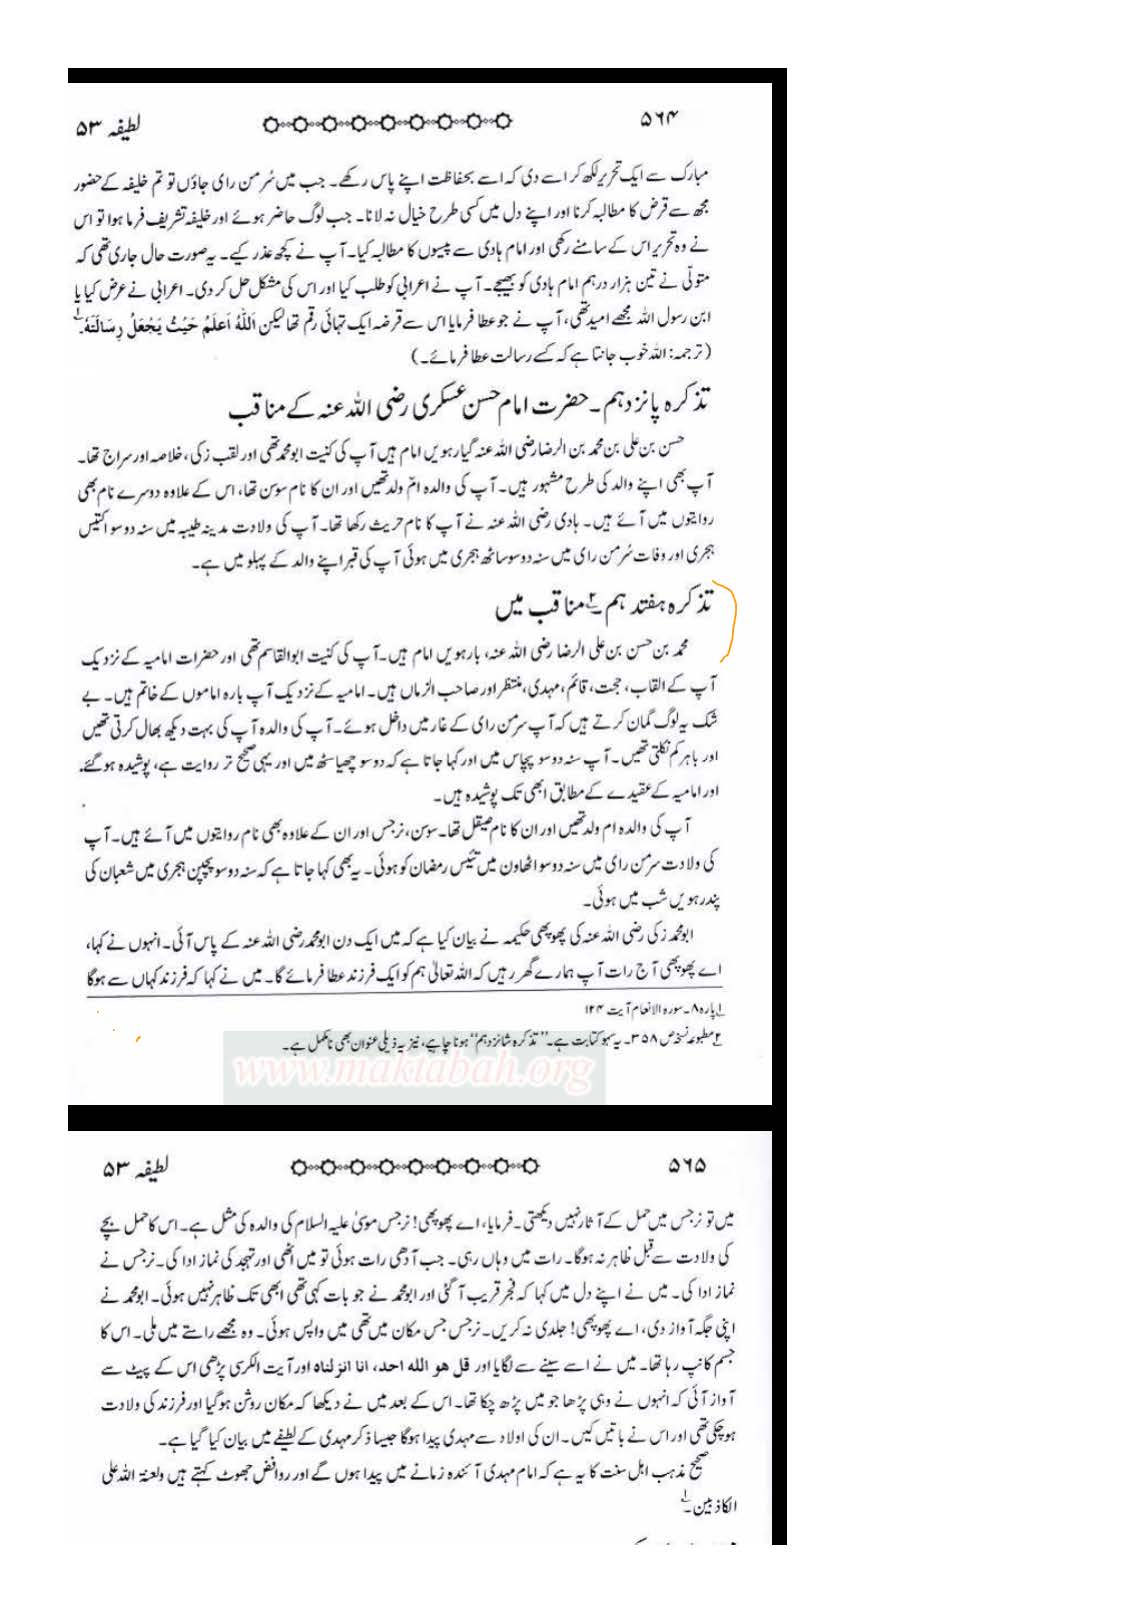 ۵۶۴ لطیفہ ۵۳
مبارک سے ایک تحریر لکھ کر اسے دی کہ اسے بحفاظت اپنے پاس رکھے۔ جب میں سُرمن رای جاؤں تو تم خلیفہ کے حضور
مجھ سے قرض کا مطالبہ کرنا اور اپنے دل میں کسی طرح خیال نہ لانا۔ جب لوگ حاضر ہوئے اور خلیفہ تشریف فرما ہوا تو اس
نے وہ تحریر اس کے سامنے رکھی اور امام ہادی سے پیسوں کا مطالبہ کیا۔ آپ نے کچھ عذر کیے۔ یہ صورت حال جاری تھی کہ
متوکی نے تین ہزار درہم امام ہادی کو بھیجے۔ آپ نے اعرابی کو طلب کیا اور اس کی مشکل حل کر دی۔ اعرابی نے عرض کیا یا
ابن رسول اللہ مجھے امید تھی، آپ نے جو عطا فرمایا اس سے قرضہ ایک تہائی رقم تھا لیکن اَللّٰهُ اَعلَمُ حَيْثُ يَجْعَلُ رِسَالَتَهٗ۔ ۱
(ترجمہ: اللہ خوب جانتا ہے کہ کسے رسالت عطا فرمائے۔)
تذکرہ پانزدہم۔ حضرت امام حسن عسکری رضی اللہ عنہ کے مناقب
حسن بن علی بن محمد بن الرضا رضی اللہ عنہ گیارہویں امام ہیں آپ کی کنیت ابومحمد تھی اور لقب زکی، خلاصہ اور سراج تھا۔
آپ بھی اپنے والد کی طرح مشہور ہیں۔ آپ کی والدہ امّ ولد تھیں اور ان کا نام سوسن تھا، اس کے علاوہ دوسرے نام بھی
روایتوں میں آئے ہیں۔ ہادی رضی اللہ عنہ نے آپ کا نام حریث رکھا تھا۔ آپ کی ولادت مدینہ طیبہ میں سنہ دوسو اکتیس
ہجری اور وفات سُرمن رای میں سنہ دوسو ساٹھ ہجری میں ہوئی آپ کی قبر اپنے والد کے پہلو میں ہے۔
تذکرہ ہفتدہم۔ ۲ مناقب میں
محمد بن حسن بن علی الرضا رضی اللہ عنہ، بارہویں امام ہیں۔ آپ کی کنیت ابوالقاسم تھی اور حضرات امامیہ کے نزدیک
آپ کے القاب، حجت، قائم، مہدی، منتظر اور صاحب الزماں ہیں۔ امامیہ کے نزدیک آپ بارہ اماموں کے خاتم ہیں۔ بے
شک یہ لوگ گمان کرتے ہیں کہ آپ سرمن رای کے غار میں داخل ہوئے۔ آپ کی والدہ آپ کی بہت دیکھ بھال کرتی تھیں
اور باہر کم نکلتی تھیں۔ آپ سنہ دوسو پچاس میں اور کہا جاتا ہے کہ دوسو چھیاسٹھ میں اور یہی صحیح تر روایت ہے، پوشیدہ ہوگئے۔
اور امامیہ کے عقیدے کے مطابق ابھی تک پوشیدہ ہیں۔
آپ کی والدہ ام ولد تھیں اور ان کا نام صیقل تھا۔ سوسن، نرجس اور ان کے علاوہ بھی نام روایتوں میں آئے ہیں۔ آپ
کی ولادت سرمن رای میں سنہ دوسو اٹھاون میں تئیس رمضان کو ہوئی۔ یہ بھی کہا جاتا ہے کہ سنہ دوسو پچپن ہجری میں شعبان کی
پندرہویں شب میں ہوئی۔
ابومحمد زکی رضی اللہ عنہ کی پھوپھی حکیمہ نے بیان کیا ہے کہ میں ایک دن ابومحمد رضی اللہ عنہ کے پاس آئی۔ انہوں نے کہا،
اے پھوپھی آج رات آپ ہمارے گھر رہیں کہ اللہ تعالیٰ ہم کو ایک فرزند عطا فرمائے گا۔ میں نے کہا کہ فرزند کہاں سے ہوگا
۱ پارہ ۸۔ سورہ الانعام آیت ۱۲۴
۲ مطبوعہ نسخہ ص ۳۵۸۔ یہ سہو کتابت ہے۔ "تذکرہ شانزدہم" ہونا چاہیے، نیز یہ ذیلی عنوان بھی نامکمل ہے۔
www.maktabah.org
۵۶۵ لطیفہ ۵۳
میں تو نرجس میں حمل کے آثار نہیں دیکھتی۔ فرمایا، اے پھوپھی! نرجس موسیٰ علیہ السلام کی والدہ کی مثل ہے۔ اس کا حمل بچے
کی ولادت سے قبل ظاہر نہ ہوگا۔ رات میں وہاں رہی۔ جب آدھی رات ہوئی تو میں اٹھی اور تہجد کی نماز ادا کی۔ نرجس نے
نماز ادا کی۔ میں نے اپنے دل میں کہا کہ فجر قریب آ گئی اور ابومحمد نے جو بات کہی تھی ابھی تک ظاہر نہیں ہوئی۔ ابومحمد نے
اپنی جگہ آواز دی، اے پھوپھی! جلدی نہ کریں۔ نرجس جس مکان میں تھی میں واپس ہوئی۔ وہ مجھے راستے میں ملی۔ اس کا
جسم کانپ رہا تھا۔ میں نے اسے سینے سے لگایا اور قل هو الله احد، انا انزلناه اور آیت الکرسی پڑھی اس کے پیٹ سے
آواز آئی کہ انہوں نے وہی پڑھا جو میں پڑھ چکا تھا۔ اس کے بعد میں نے دیکھا کہ مکان روشن ہوگیا اور فرزند کی ولادت
ہوچکی تھی اور اس نے باتیں کیں۔ ان کی اولاد سے مہدی پیدا ہوگا جیسا ذکر مہدی کے لطیفے میں بیان کیا گیا ہے۔
صحیح مذہب اہل سنت کا یہ ہے کہ امام مہدی آئندہ زمانے میں پیدا ہوں گے اور روافض جھوٹ کہتے ہیں ولعنۃ اللہ علی
الکاذبین۔ ۱